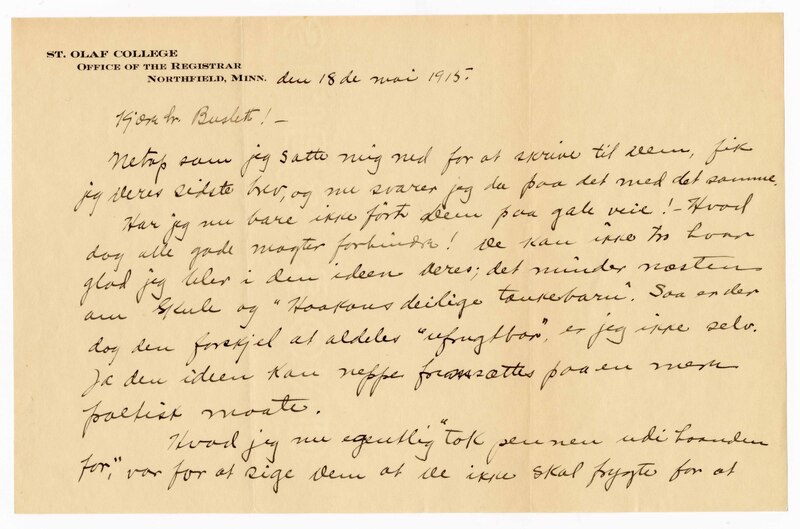 ST. OLAF COLLEGE
OFFICE OF THE REGISTRAR
NORTHFIELD, MINN. den 18de mai 1915.
Kjære hr. Buslett! —
Netop som jeg satte mig ned for at skrive til Dem, fik
jeg Deres sidste brev, og nu svarer jeg da paa det med det samme.
Har jeg nu bare ikke ført Dem paa gale veie! — Hvad
dog alle gode magter forhindre! De kan ikke tro hvor
glad jeg blev i den ideen Deres; det minder næsten
om Skule og "Haakons deilige tankebarn". Saa er der
dog den forskjel at aldeles "ufrugtbar", er jeg ikke selv.
Ja den ideen kan neppe fremsættes paa en mere
poetisk maate.
Hvad jeg nu egentlig "tok pennen udi haanden
for," var for at sige Dem at De ikke skal frygte for at